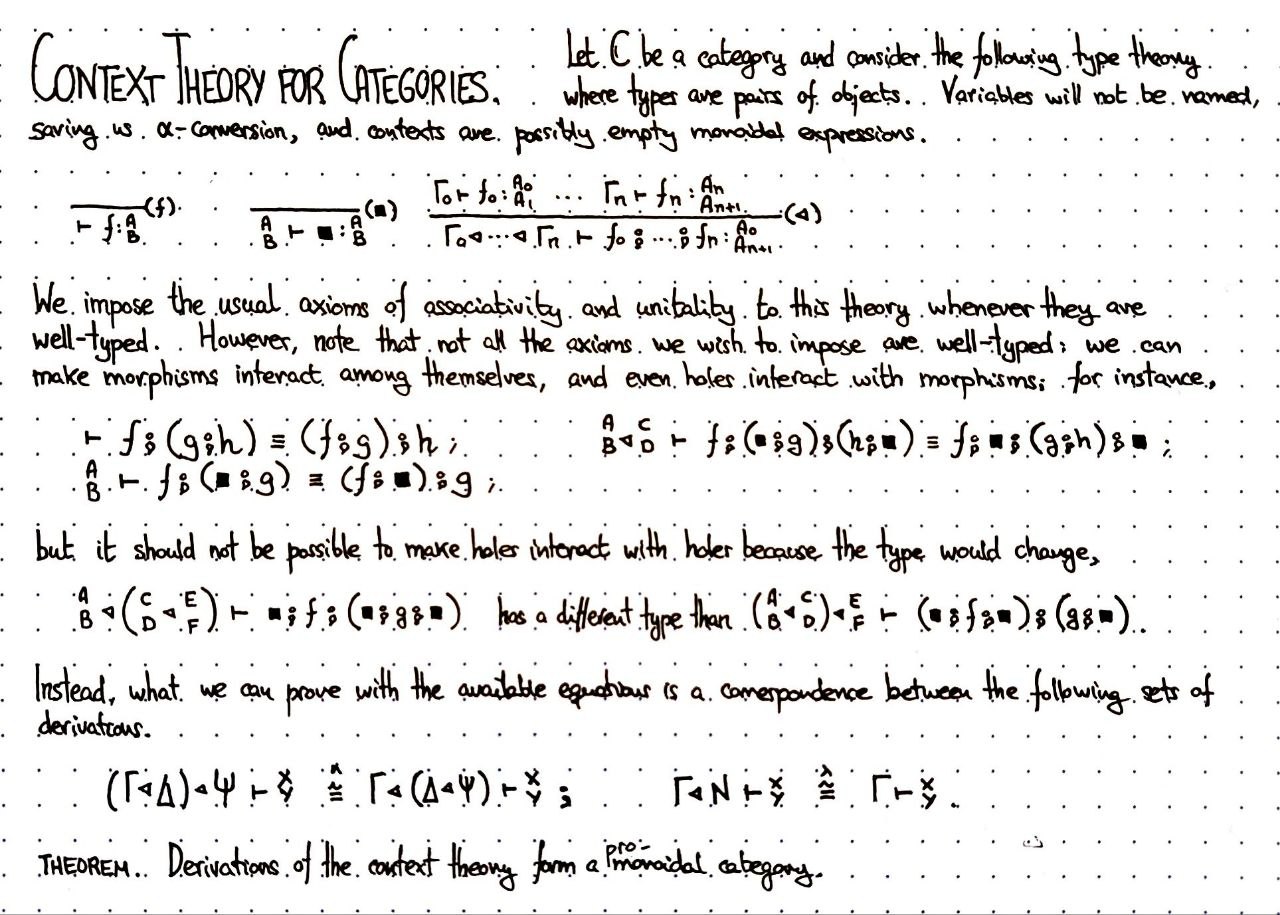 CONTEXT THEORY FOR CATEGORIES. Let ℂ be a category and consider the following type theory
where types are pairs of objects. Variables will not be named,
saving us α-conversion, and contexts are possibly empty monoidal expressions.
───── (f)   ───── (■)   Γ₀ ⊢ f₀ : A₀ / A₁ ... Γₙ ⊢ fₙ : Aₙ / Aₙ₊₁ ───── (◁)
⊢ f : A / B   A / B ⊢ ■ : A / B   Γ₀ ◁ ... ◁ Γₙ ⊢ f₀ ⨾ ... ⨾ fₙ : A₀ / Aₙ₊₁
We impose the usual axioms of associativity and unitality to this theory whenever they are
well-typed. However, note that not all the axioms we wish to impose are well-typed: we can
make morphisms interact among themselves, and even holes interact with morphisms; for instance,
⊢ f ⨾ (g ⨾ h) ≡ (f ⨾ g) ⨾ h ;   A / B ◁ C / D ⊢ f ⨾ (■ ⨾ g) ⨾ (h ⨾ ■) ≡ f ⨾ ■ ⨾ (g ⨾ h) ⨾ ■ ;
A / B ⊢ f ⨾ (■ ⨾ g) ≡ (f ⨾ ■) ⨾ g ;
but it should not be possible to make holes interact with holer because the type would change,
A / B ◁ (C / D ◁ E / F) ⊢ ■ ⨾ f ⨾ (■ ⨾ g ⨾ ■) has a different type than (A / B ◁ C / D) ◁ E / F ⊢ (■ ⨾ f ⨾ ■) ⨾ (g ⨾ ■).
Instead, what we can prove with the available equations is a correspondence between the following sets of
derivations.
(Γ ◁ Δ) ◁ Ψ ⊢ X / Y ≅^α Γ ◁ (Δ ◁ Ψ) ⊢ X / Y ;   Γ ◁ N ⊢ X / Y ≅^λ Γ ⊢ X / Y .
THEOREM. Derivations of the context theory form a pro-monoidal category.